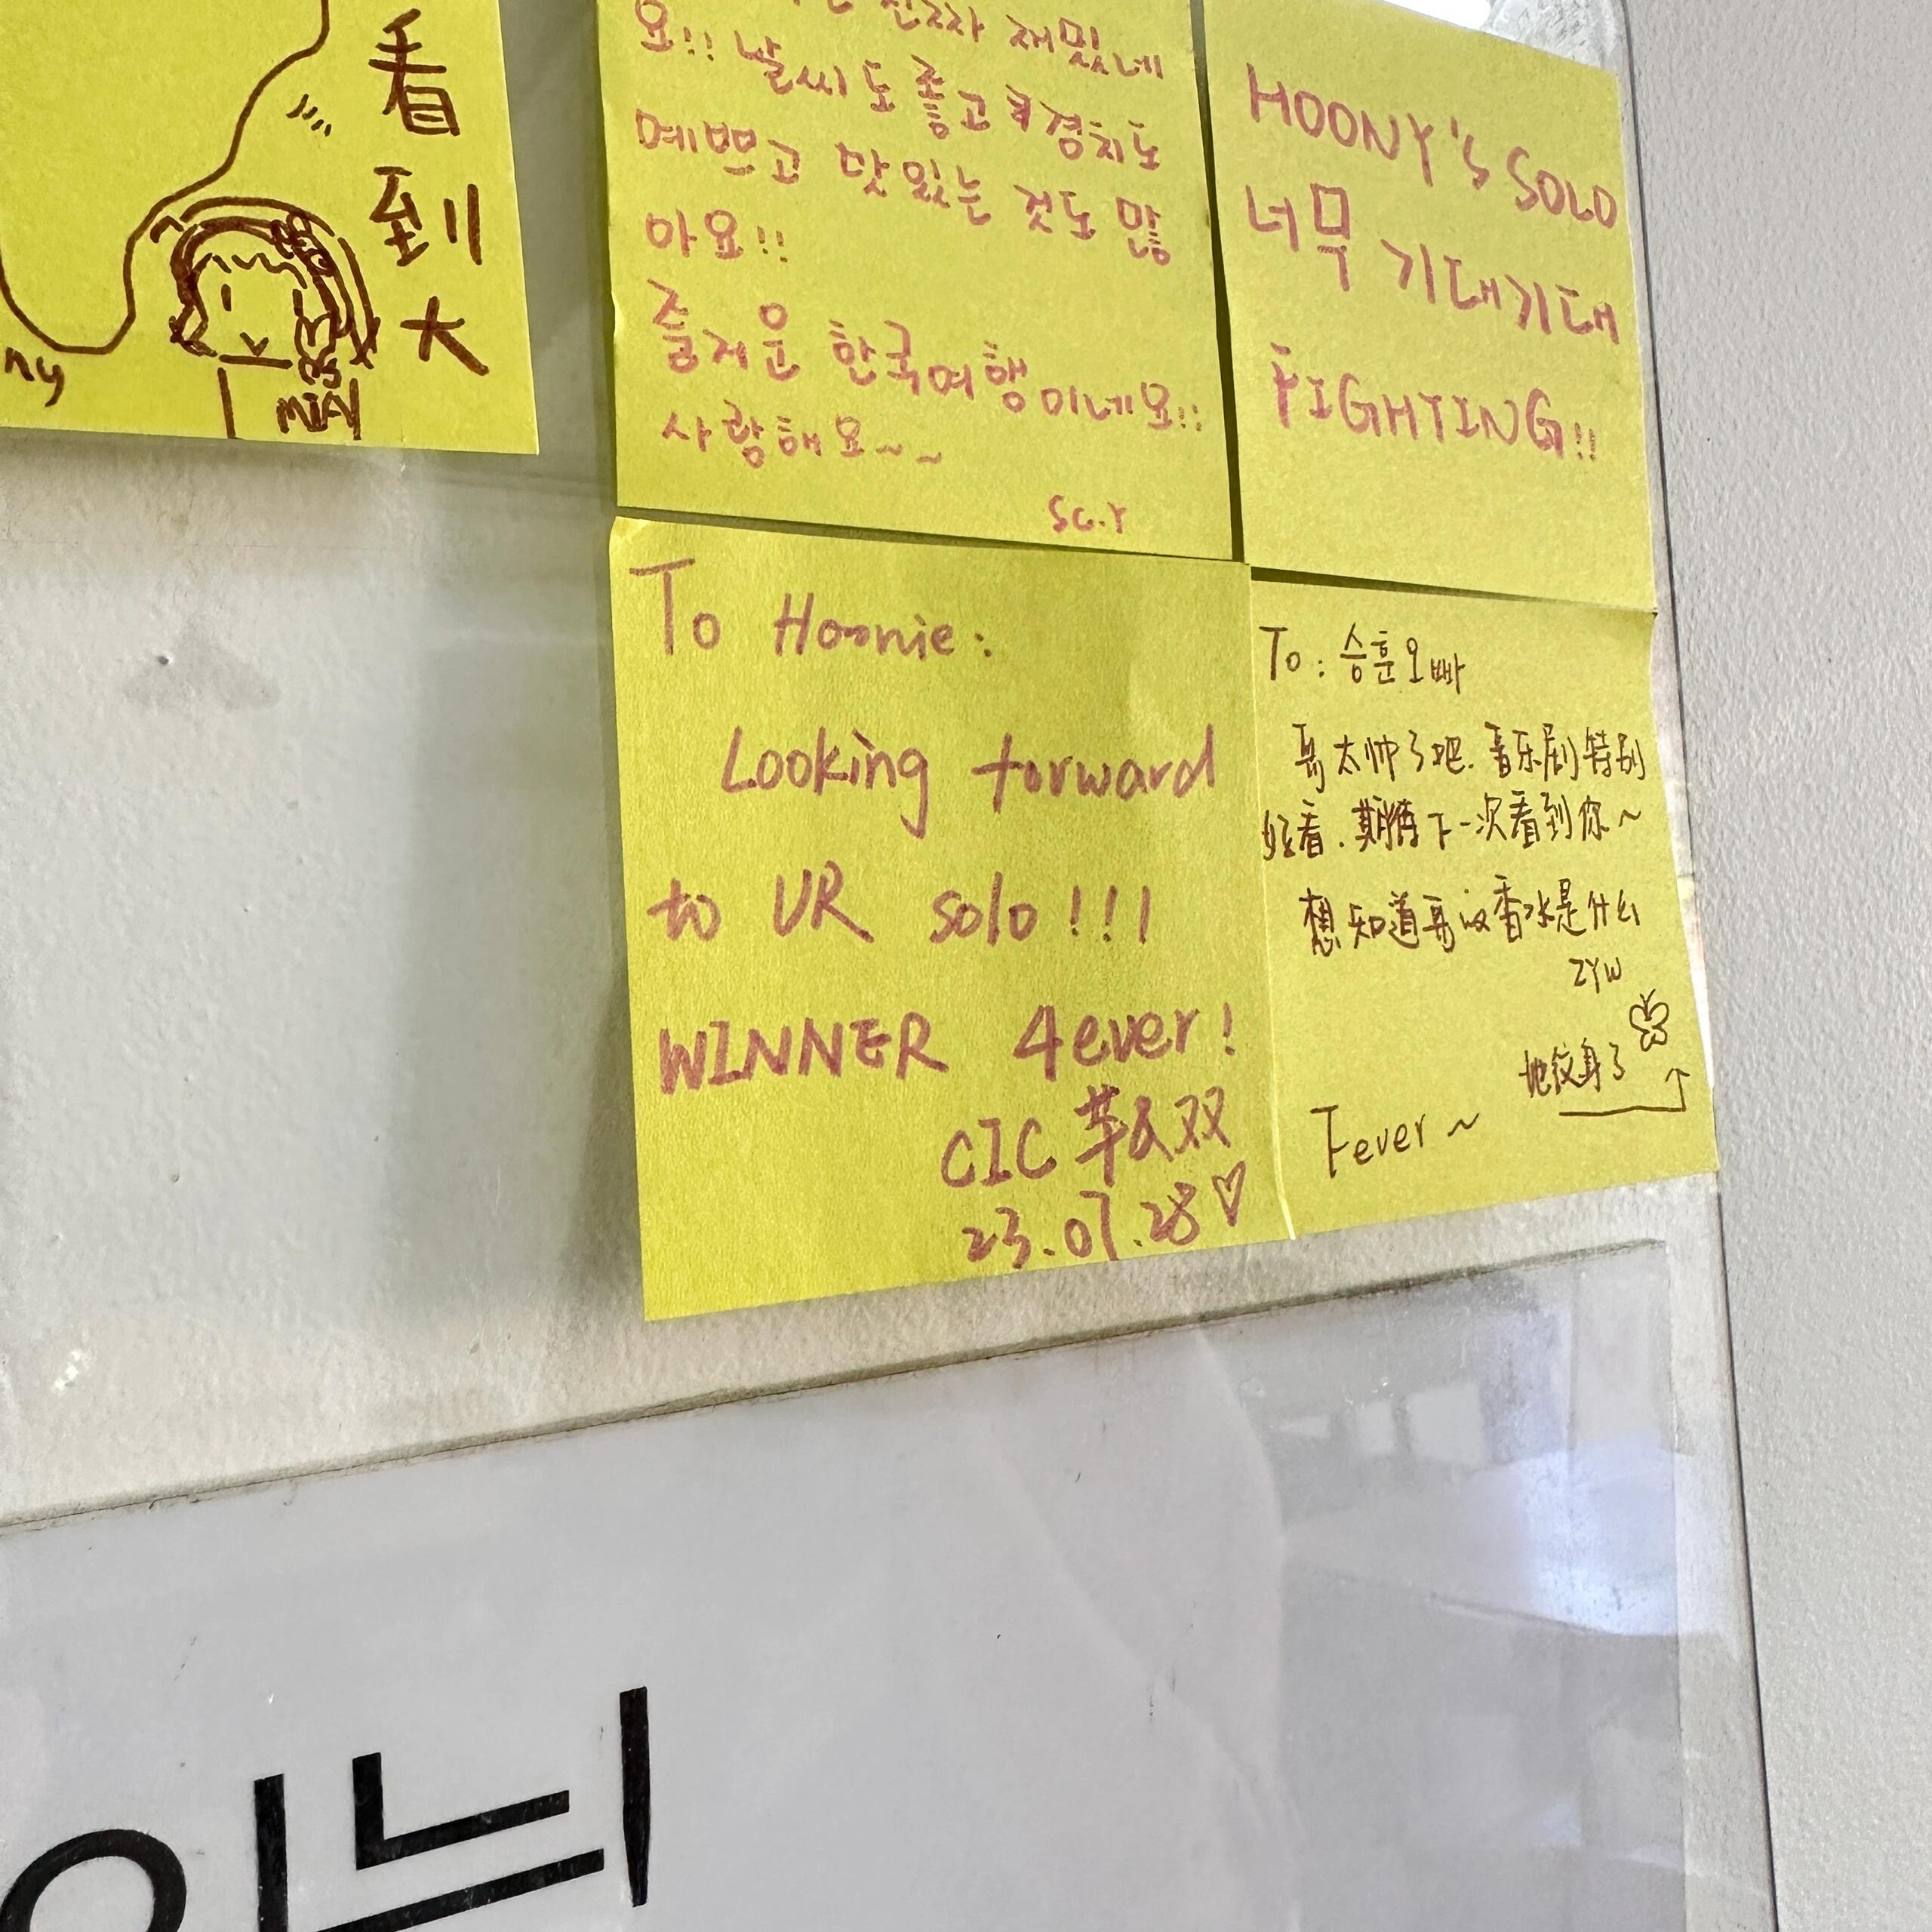 看
到
大
ny
MINI
진짜 재밌네
요!! 날씨도 좋고 경치도
예쁘고 맛있는 것도 많
아요!!
즐거운 한국여행이네요!!
사랑해요~~
SC.Y
HOONY'S SOLO
너무 기대기대
FIGHTING!!
To Hoonie:
Looking forward
to UR solo!!!
WINNER 4ever!
CIC 苹&双
23.07.28♡
To: 승훈오빠
哥太帅了吧.音乐剧特别
好看.期待下一次看到你~
想知道哥的香水是什么
ZYW
她纹身了
Fever~